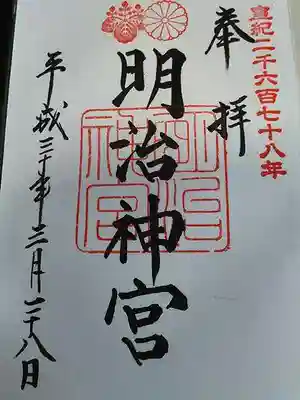 皇紀二千六百七十八年
奉拝
明治神宮
明治神宮
平成三十年三月二十八日